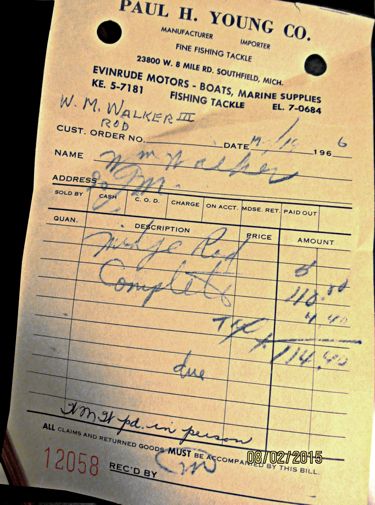 PAUL H. YOUNG CO.
MANUFACTURER IMPORTER
FINE FISHING TACKLE
23800 W. 8 MILE RD. SOUTHFIELD, MICH.
EVINRUDE MOTORS - BOATS, MARINE SUPPLIES
KE. 5-7181 FISHING TACKLE EL. 7-0684
W. M. WALKER III
ROD
CUST. ORDER NO. DATE 196 6
NAME Wm Walker
ADDRESS
SOLD BY CASH C. O. D. CHARGE ON ACCT. MDSE. RET. PAID OUT
QUAN. DESCRIPTION PRICE AMOUNT
Midge Rod
Complete 00
Tax 4.40
114.40
due
pd. in person
ALL CLAIMS AND RETURNED GOODS MUST BE ACCOMPANIED BY THIS BILL.
12058 REC'D BY
08/02/2015